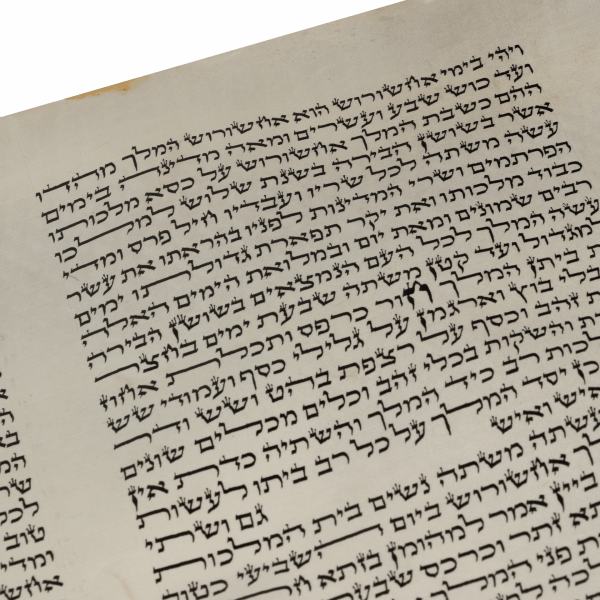 ויהי בימי אחשורוש הוא אחשורוש המלך מהדו
ועד כוש שבע ועשרים ומאה מדינה בימים
ההם כשבת המלך אחשורוש על כסא מלכותו
אשר בשושן הבירה בשנת שלוש למלכו
עשה משתה לכל שריו ועבדיו חיל פרס ומדי
הפרתמים ושרי המדינות לפניו בהראתו את עשר
כבוד מלכותו ואת יקר תפארת גדולתו ימים
רבים שמונים ומאת יום ובמלואת הימים האלה
עשה המלך לכל העם הנמצאים בשושן הבירה
למגדול ועד קטן משתה שבעת ימים בחצר
ביתן המלך חור כרפס ותכלת אחוז
בוץ וארגמן על גלילי כסף ועמודי שש
זהב וכסף על רצפת בהט ושש ודר
והשקות בכלי זהב וכלים מכלים שונים
רב כיד המלך והשתיה כדת אין
יסד המלך על כל רב ביתו לעשות
איש ואיש
גם ושתי
עשתה משתה נשים בית המלכות
אחשורוש ביום השביעי כטוב
ביין אמר למהומן בזתא
זתר וכרכס שבעת
פני המלך
לכל
טוב
ומדי